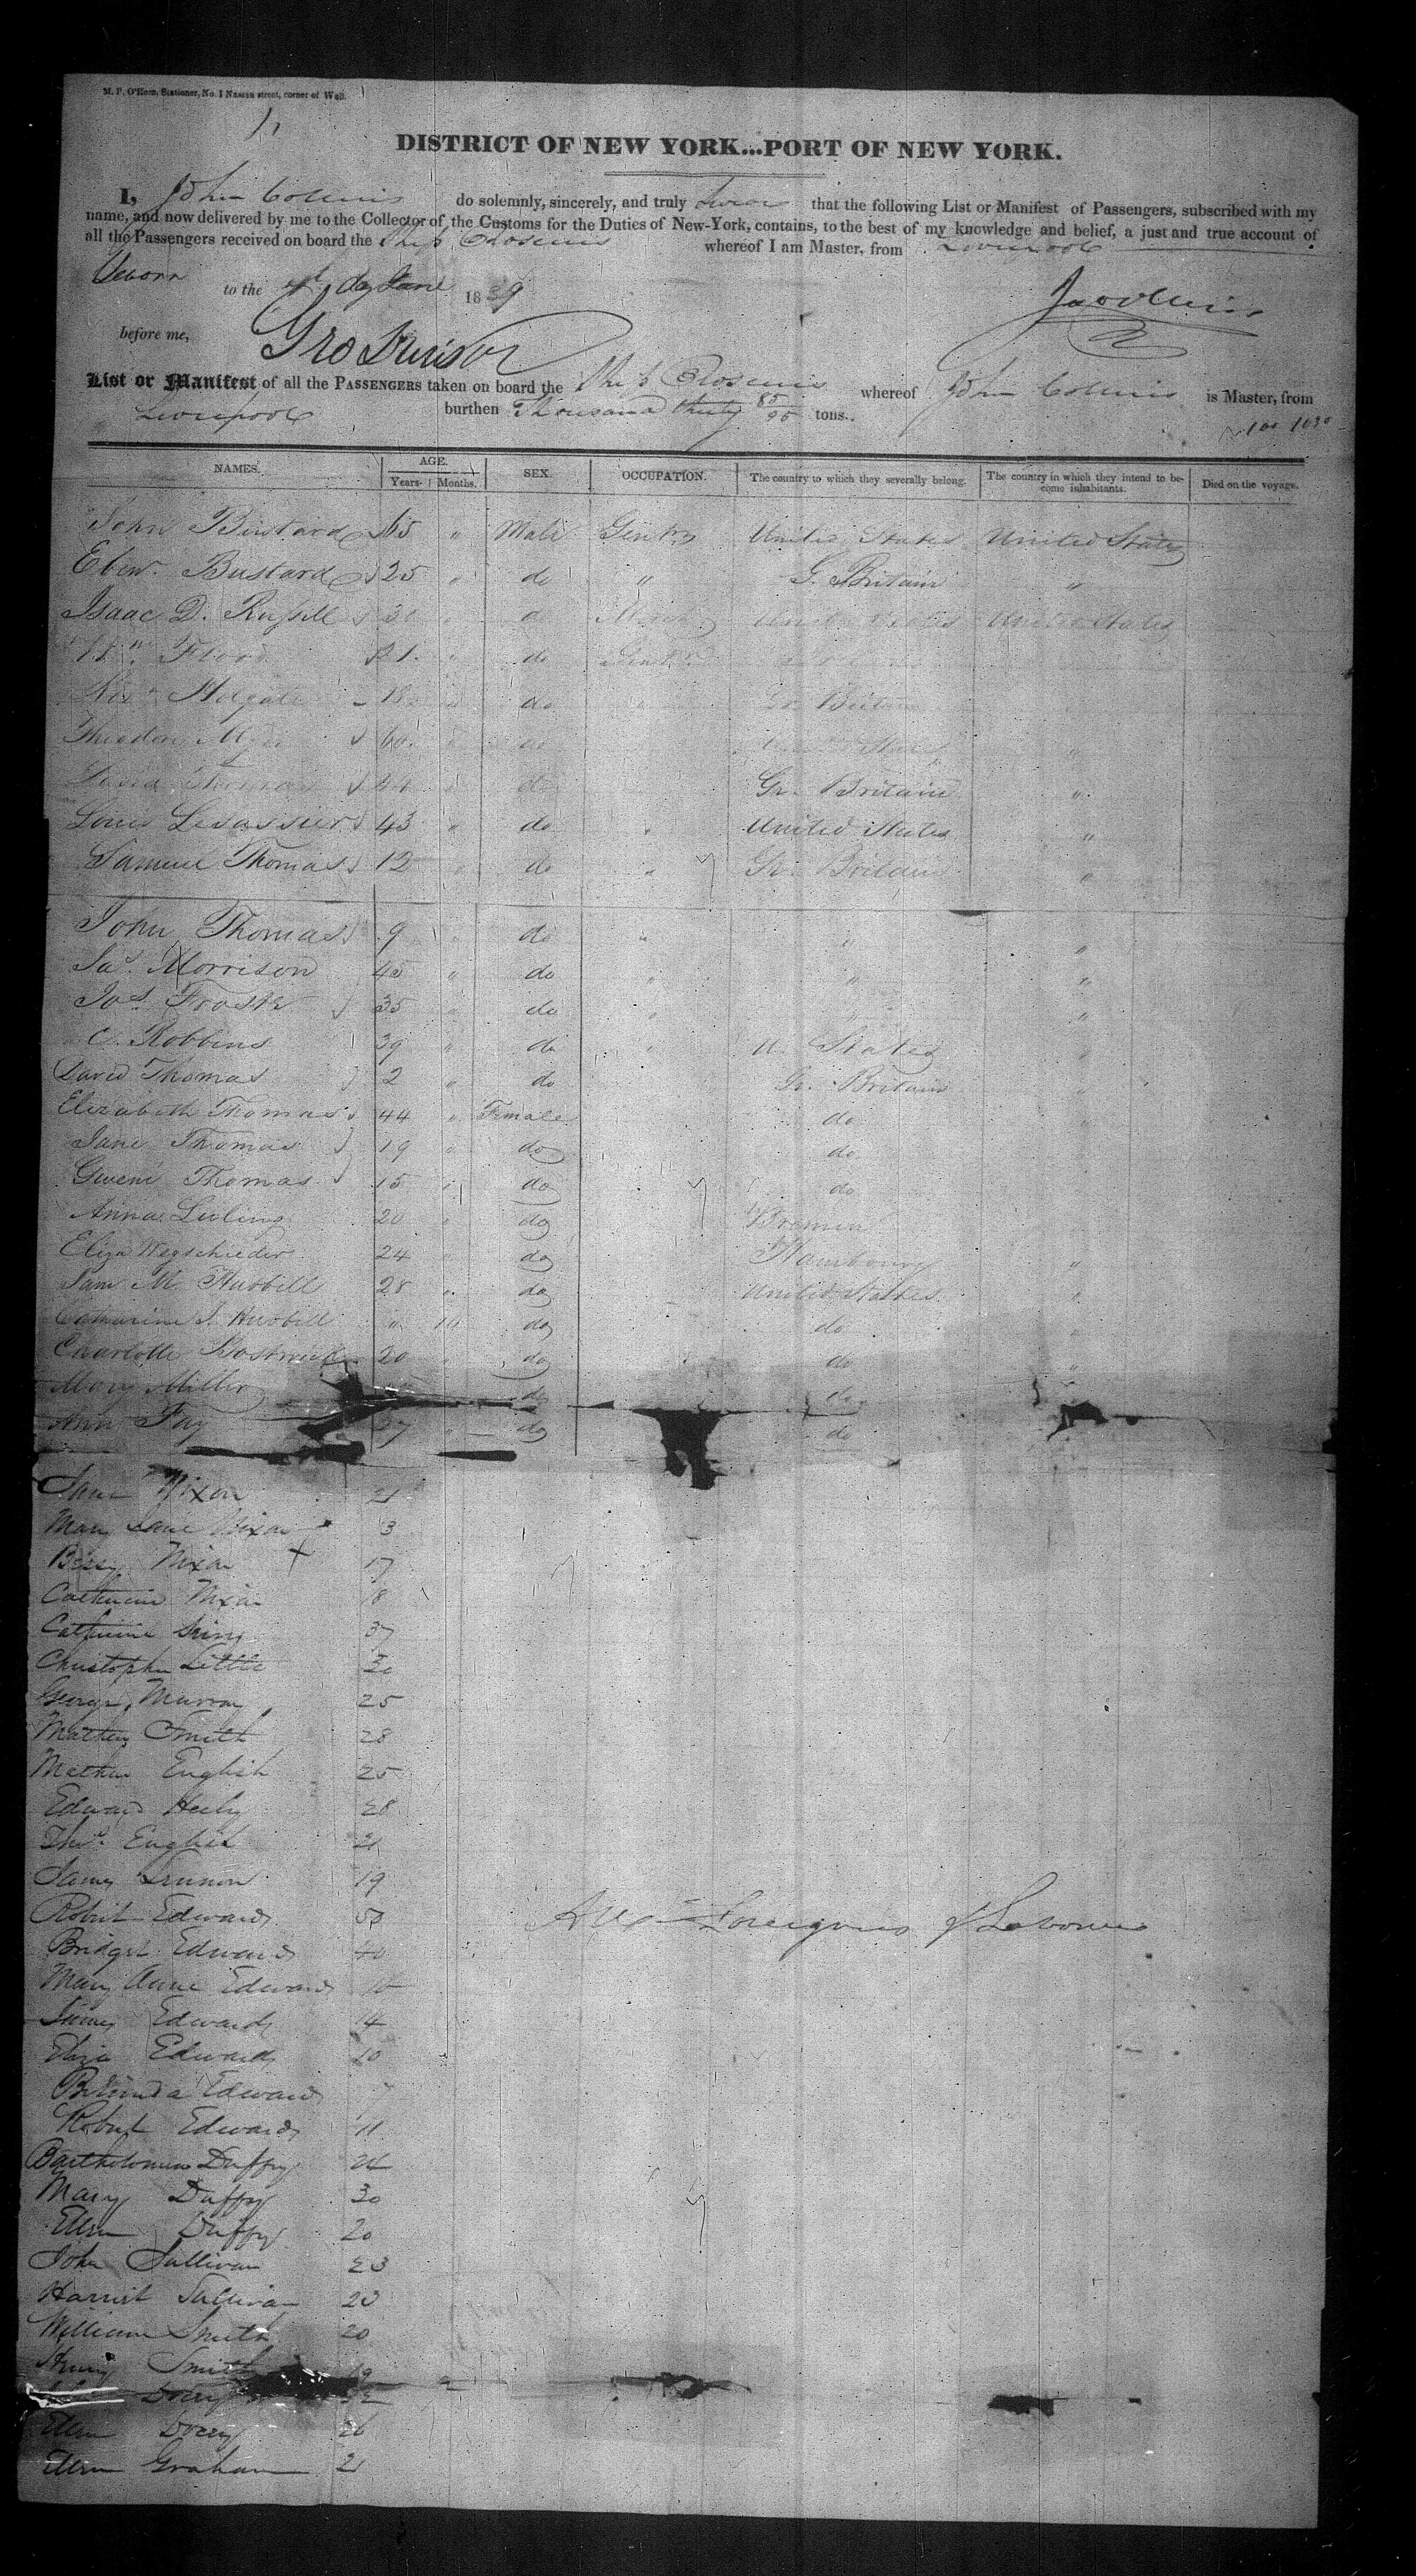 M. P. O'Hern, Stationer, No. 1 Nassau street, corner of Wall.
DISTRICT OF NEW YORK...PORT OF NEW YORK.
I, John Collins do solemnly, sincerely, and truly swear that the following List or Manifest of Passengers, subscribed with my
name, and now delivered by me to the Collector of the Customs for the Duties of New-York, contains, to the best of my knowledge and belief, a just and true account of
all the Passengers received on board the Ship Roscius whereof I am Master, from Liverpool
Sworn to the day June 1839
Jno Collins
before me,
List or Manifest of all the PASSENGERS taken on board the Ship Roscius whereof John Collins is Master, from
Liverpool burthen Thousand thirty 85/95 tons.
NAMES. AGE. SEX. OCCUPATION. The country to which they severally belong. The country in which they intend to become inhabitants. Died on the voyage.
Years. Months.
John Bustard 65 " Male Gent. United States United States
Eben. Bustard 25 " do " G. Britain "
Isaac D. Russell 30 United States United States
Wm. Flood 21 " do Gent.
Holgate 18 do Gr. Britain
Theodore 60 do "
David Thomas 44 " do Gr. Britain "
Louis Lesassier 43 " do " United States "
Samuel Thomas 12 " do " Gr. Britain "
John Thomas 9 " do " " "
Jas. Morrison 45 " do " " "
Jos. Frost 35 " do " " "
C. Robbins 39 " do " U. States "
David Thomas 2 " do Gr. Britain "
Elizabeth Thomas 44 " Female do "
Jane Thomas 19 " do do
Gwent Thomas 15 " do do
Anna Luling 20 " do Bremen
Eliza Wegschieder 24 " do Hambourg "
Jane M. Hubbell 28 " do United States "
Catharine S. Hubbell " 10 do do
Charlotte Bostwick 20 " do do "
Mary Miller do do
Ann Fay 27 " do do
Jane Nixon 21
Mary Jane Nixon 3
Bessy Nixon 17
Catherine Nixon 18
Catherine 37
Christopher Little 30
George Murray 25
Mathew Smith 28
Mathew English 25
Edward Heely 28
Thos. English 21
James Lennon 19
Robert Edwards 50 All Foreigners & Labourers
Bridget Edwards 40
Mary Anne Edwards 16
James Edwards 14
Eliza Edwards 10
Belinda Edwards 7
Robert Edwards 11
Bartholomew Duffy 26
Mary Duffy 30
Ellen Duffy 20
John Sullivan 23
Harriet Sullivan 23
William Smith 20
Henry Smith 19
Ellen 26
Ellen Graham 21